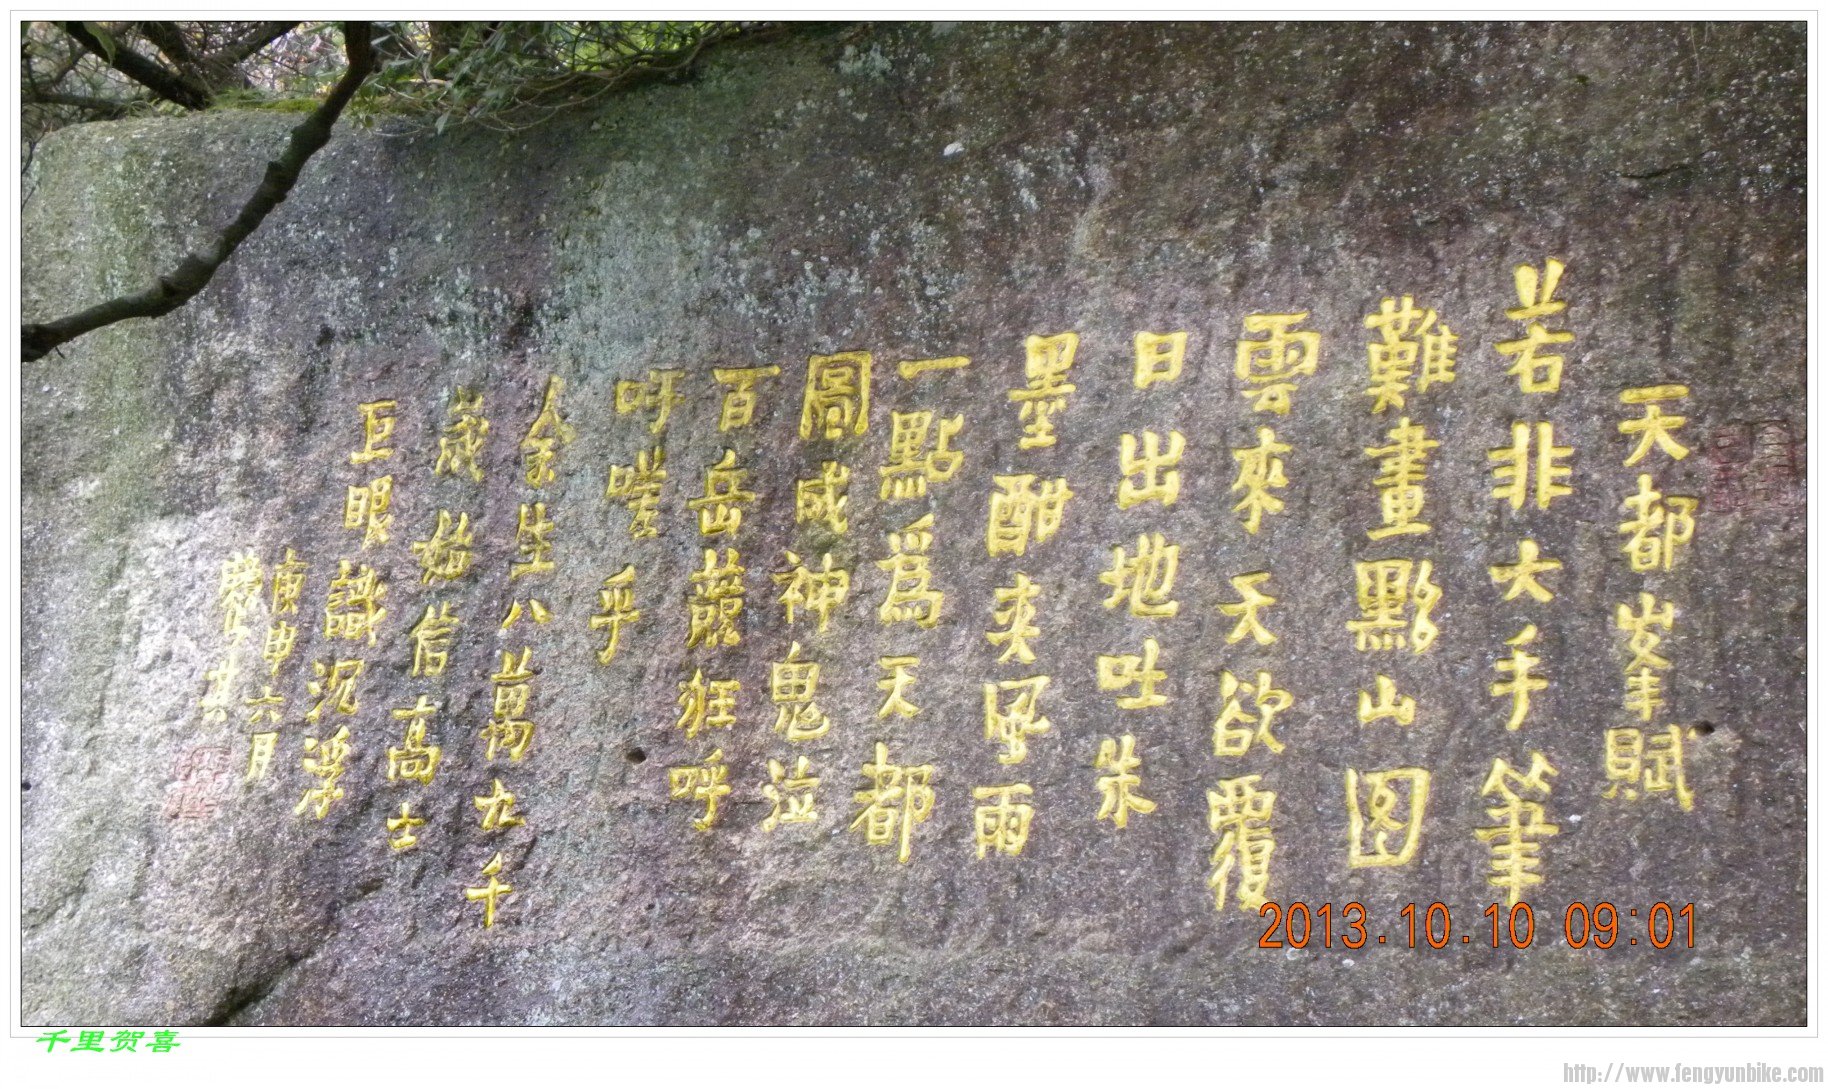 天都峯賦
若非大手筆
難畫黟山图
雲來天欲覆
日出地吐朱
墨酣来風雨
一點爲天都
圖成神鬼泣
百岳狂呼
吁嗟乎
余生八萬九千
歲始信高士
巨眼識沉浮
庚申六月
2013.10.10 09:01
千里贺喜
http://www.fengyunbike.com